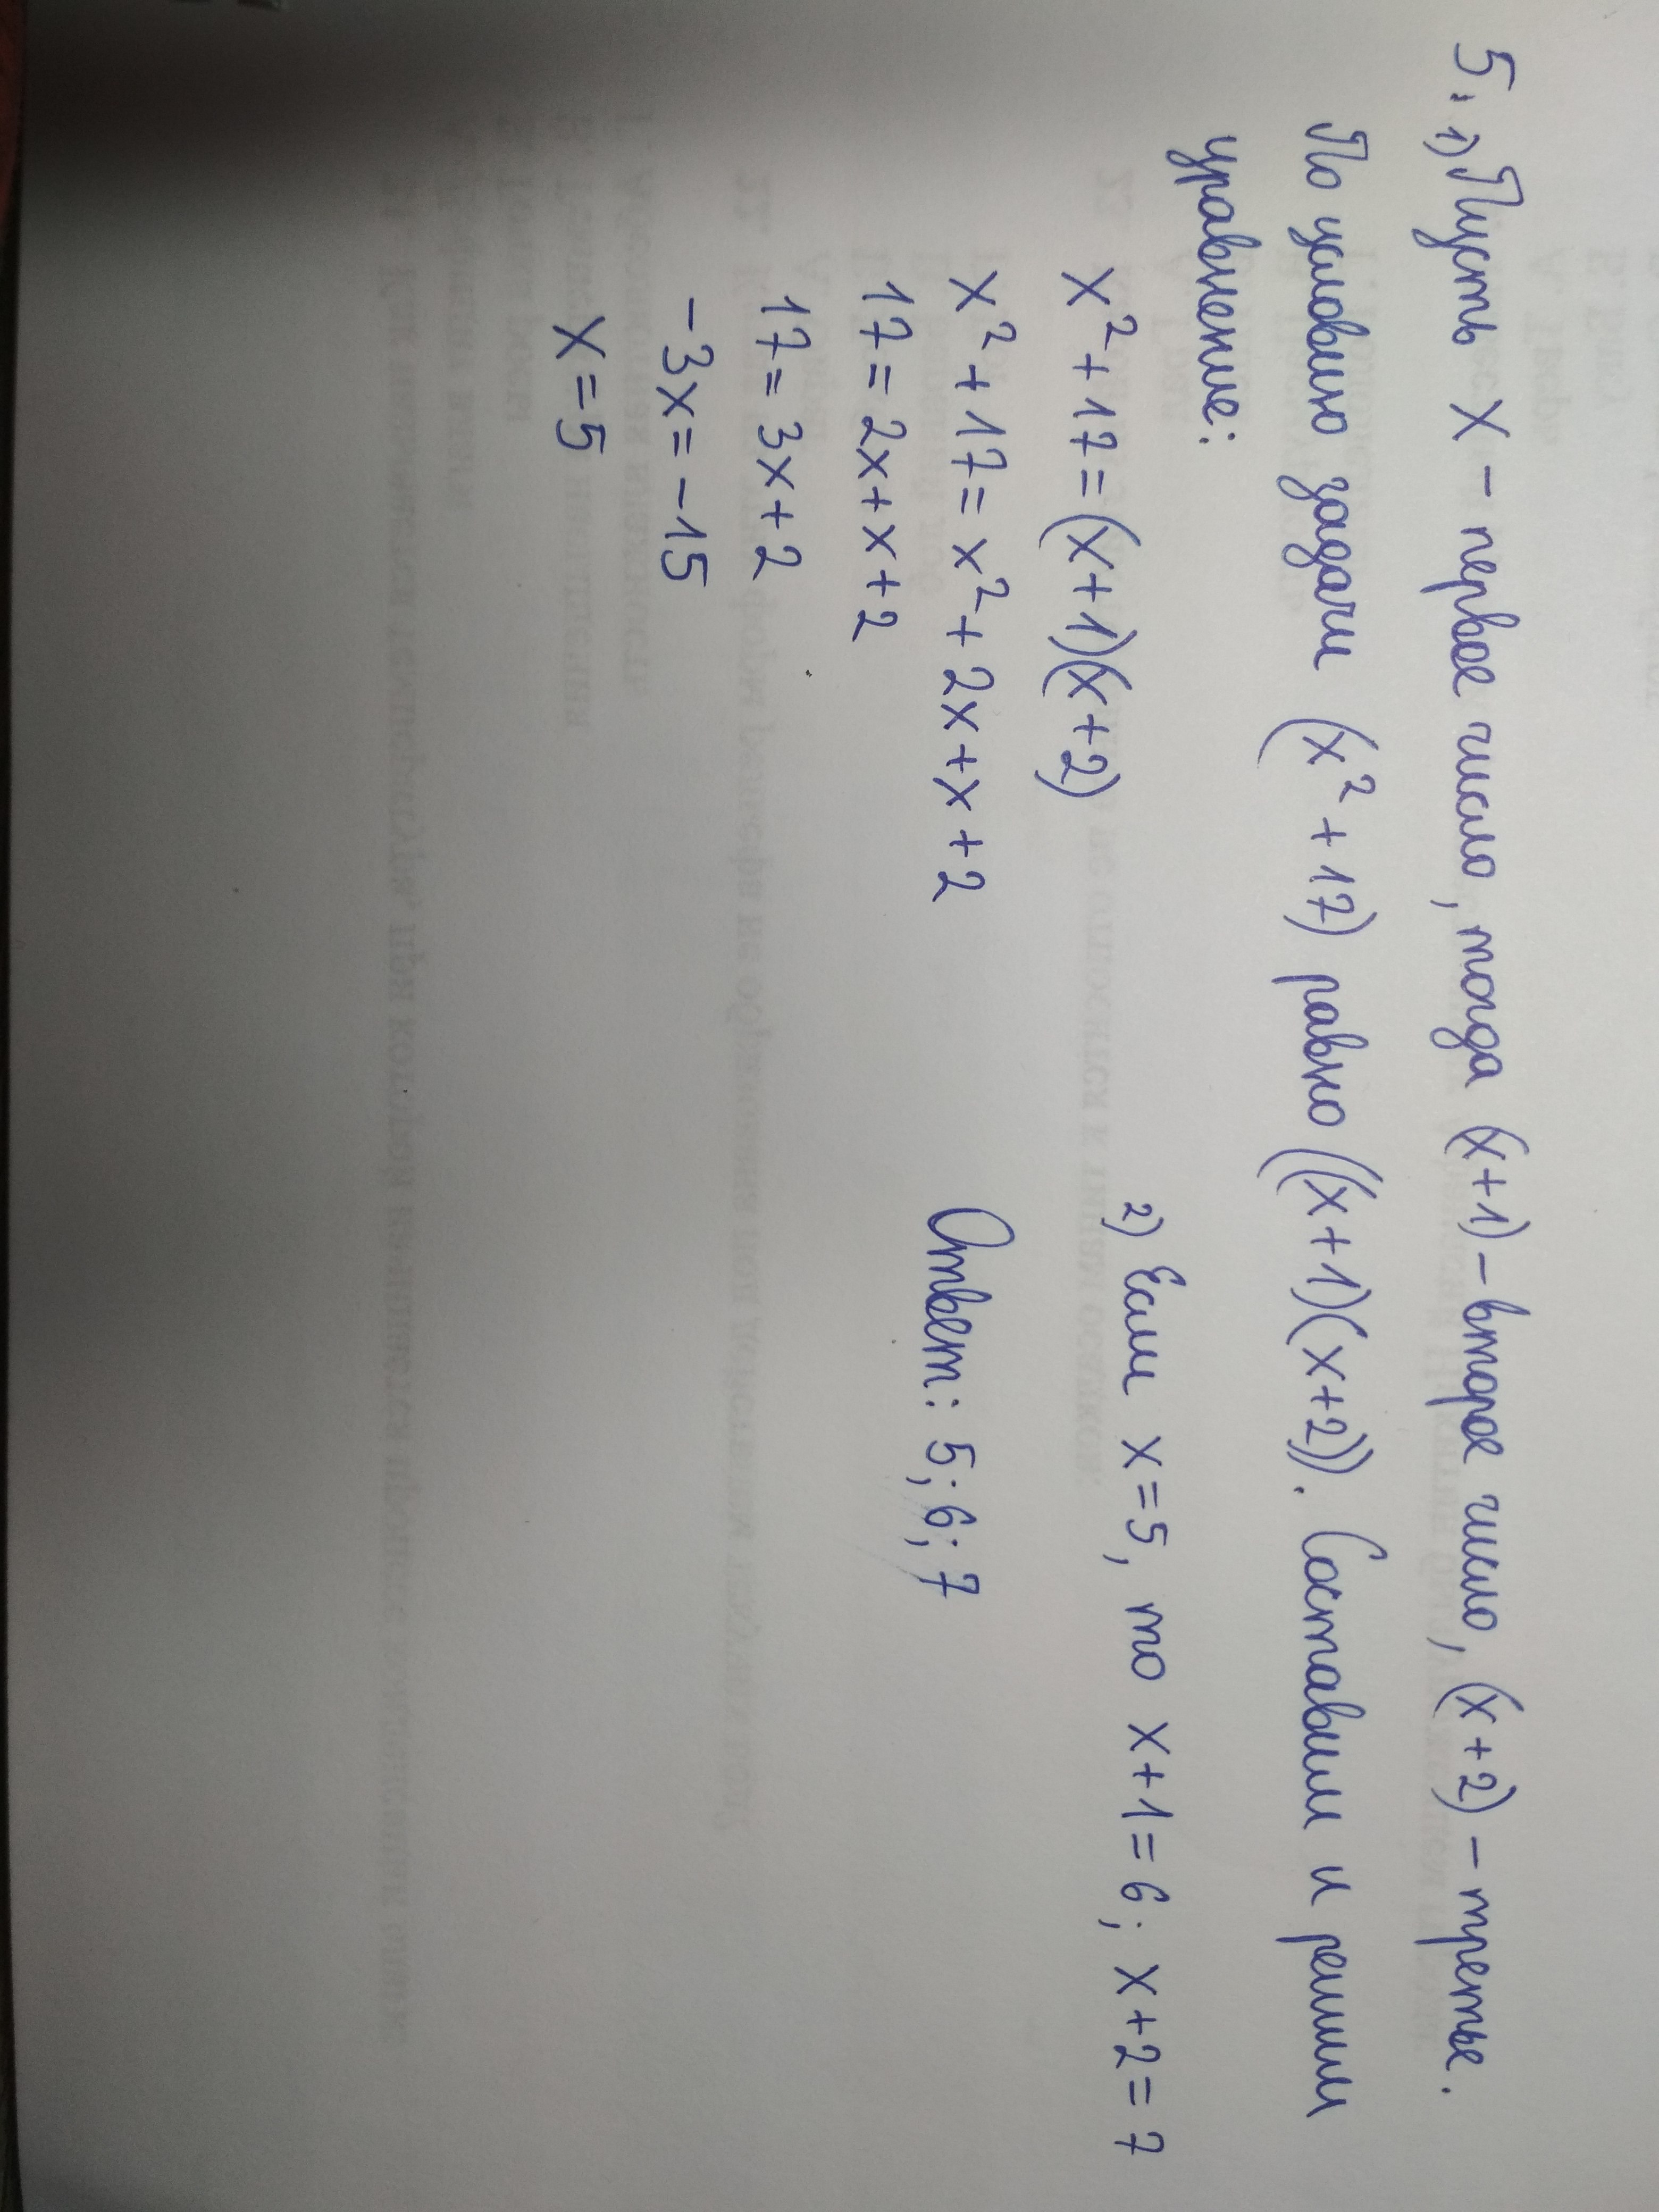 5. 1) Пусть x – первое число, тогда (x+1) – второе число, (x+2) – третье.
По условию задачи (x²+17) равно ((x+1)(x+2)). Составим и решим
уравнение:
x²+17=(x+1)(x+2)
x²+17=x²+2x+x+2
17=2x+x+2
17=3x+2
-3x=-15
x=5
2) Если x=5, то x+1=6; x+2=7
Ответ: 5; 6; 7